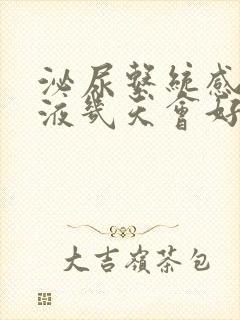 泌尿繫統感
液幾天會好
大吉嶺茶包